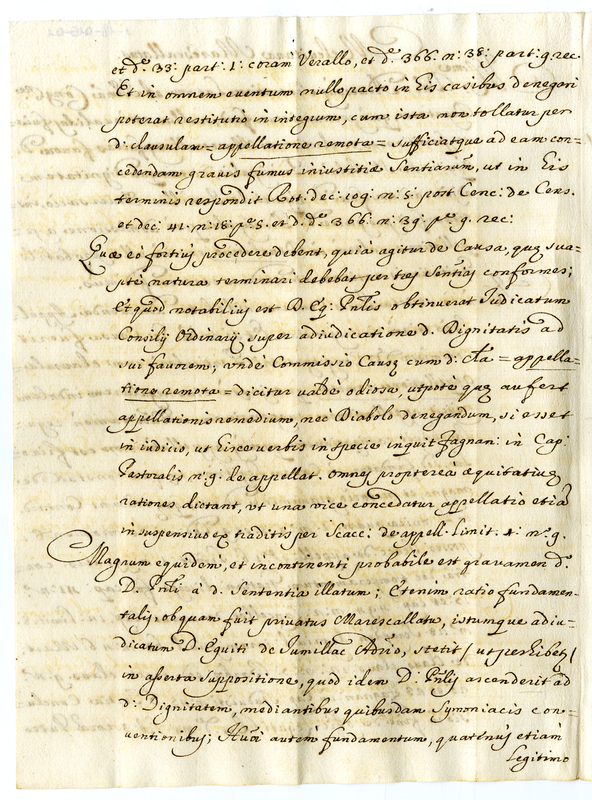 et d.º 33: part: 1: coram Verallo, et d.º 366. n.º 38: part: 9. rec.
Et in omnem eventum nullo pacto in Eis casibus denegari
poterat restitutio in integrum, cum ista non tollatur per
d: clausulam = appellatione remota = sufficiatque ad eam con=
cedendam gravis fumus iniustitiæ Sententiarum, ut in Eis
terminis respondit Rot: dec: 109: n: 5: post Cenc: de Cens.
et dec: 41. n: 18: p.e 5. et d. d.º 366. n: 39. p.e 9. rec:
Quæ eò fortius procedere debent, quià agitur de Causa, quę sua=
ptè natura terminari debebat per tres Sent̃ias conformes;
Et quod notabilius est D. Eq: Pr̃lis obtinuerat Iudicatum
Consilij Ordinarij super adiudicatione d. Dignitatis ad
sui favorem; undè Commissio Causę cum d: cl̃a = appella=
tione remota = dicitur valdè odiosa, utpotè quę aufert
appellationis remedium, nec Diabolo denegandum, si esset
in iudicio, ut Eisce verbis in specie inquit Fagnan: in Cap:
Pastoralis n.º 9. de appellat. omnes proptereà æquitativę
rationes dictant, ut una vice concedatur appellatio etiã
in suspensivo ex traditis per Scacc: de appell. Limit. 4. n.º 9.
Magnum equidem, et incontinenti probabile est gravamen d.º
D. Pr̃li à d. Sententia illatum; Etenim ratio fundamen=
talis, ob quam fuit privatus Marescallatu, istumque adiu=
dicatum D. Equiti de Jumillac Adr̃io, stetit / ut perhibet /
in asserta suppositione, quod idem D: Pr̃lis ascenderit ad
d: Dignitatem, mediantibus quibusdam Symoniacis con=
ventionibus; Hui autem fundamentum, quatenus etiam
Legitimo